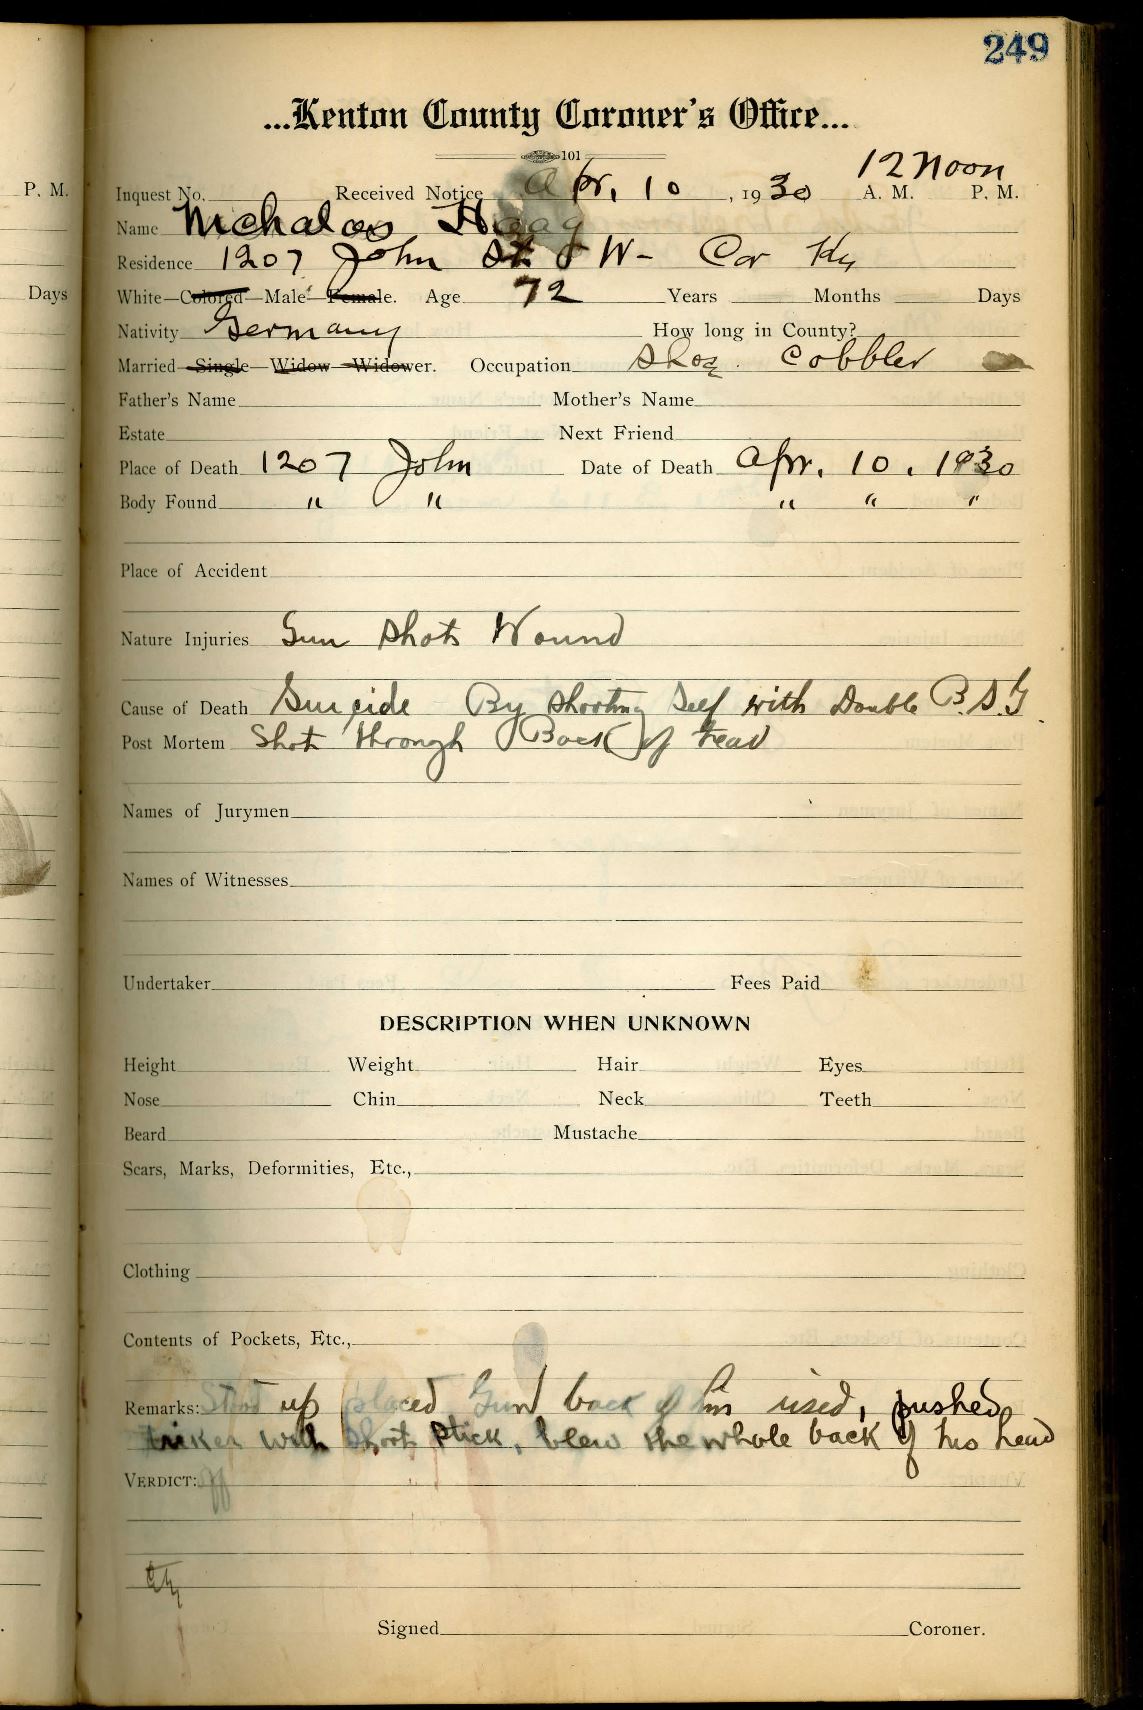 249
...Kenton County Coroner's Office...
101
12 Noon
P. M.
Inquest No. Received Notice Apr. 10, 1930 A. M. P. M.
Name Nichalos Haag
Residence 1207 John St W- Cov Ky
Days
White—Colored—Male—Female. Age 72 Years Months Days
Nativity Germany How long in County?
Married—Single—Widow—Widower. Occupation Shoe Cobbler
Father's Name Mother's Name
Estate Next Friend
Place of Death 1207 John Date of Death Apr. 10, 1930
Body Found " " " " "
Place of Accident
Nature Injuries Gun Shots Wound
Cause of Death Suicide By Shooting Self with Double B.S.G.
Post Mortem Shot through Back of head
Names of Jurymen
Names of Witnesses
Undertaker Fees Paid
DESCRIPTION WHEN UNKNOWN
Height Weight Hair Eyes
Nose Chin Neck Teeth
Beard Mustache
Scars, Marks, Deformities, Etc.,
Clothing
Contents of Pockets, Etc.,
Remarks: Stood up placed Gun back of, pushed
with short stick, blew the whole back of his head
VERDICT: off
Signed Coroner.